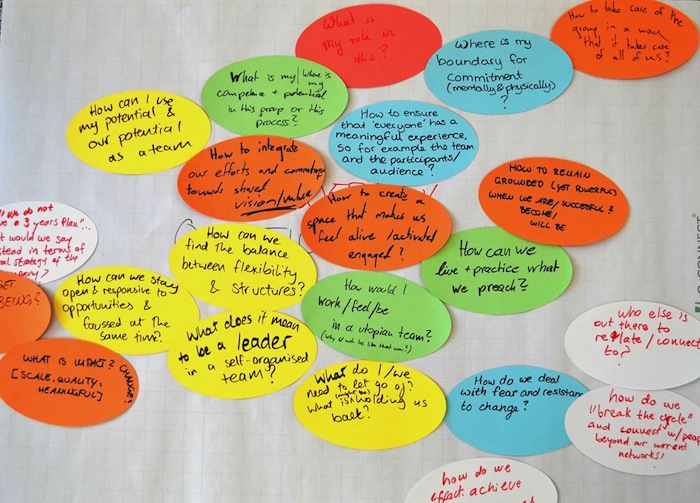 What is
my role in
this?
Where is my
boundary for
commitment
(mentally & physically)
?
How to take care of the
group in a way
that it takes care
of all of us?
What is my/where is
my
competence + potential
in this group or this
process?
How can I use
my potential &
our potential
as a team
How to ensure
that 'everyone' has a
meaningful experience,
so for example the team
and the participants/
audience?
How to integrate
our efforts and
towards shared
vision/value
How to create a
space that makes us
feel alive/activated
engaged?
HOW TO REMAIN
GROUNDED (YET POWERFUL)
WHEN WE ARE/SUCCESSFUL?
BECOME/
WILL BE
we do not
a 3 years plan"...
would we say
in terms of
strategy of the
How can we
find the balance
between flexibility
& structures?
How can we
live + practice what
we preach?
BEING?
How can we stay
open & responsive to
opportunities &
focussed at the
same time?
How would I
work/feel/be
in a utopian team?
What does it mean
to be a leader
in a self-organised
team?
who else is
out there to
relate/connect
to?
WHAT IS IMPACT?
CHANGE?
[SCALE, QUALITY,
MEANINGFUL]
What do I/we
need to let go of?
what is/might be holding us
back?
How do we deal
with fear and resistance
to change?
how do we
"break the cycle"
and connect w/
beyond our current
networks?
how do we
effect achieve